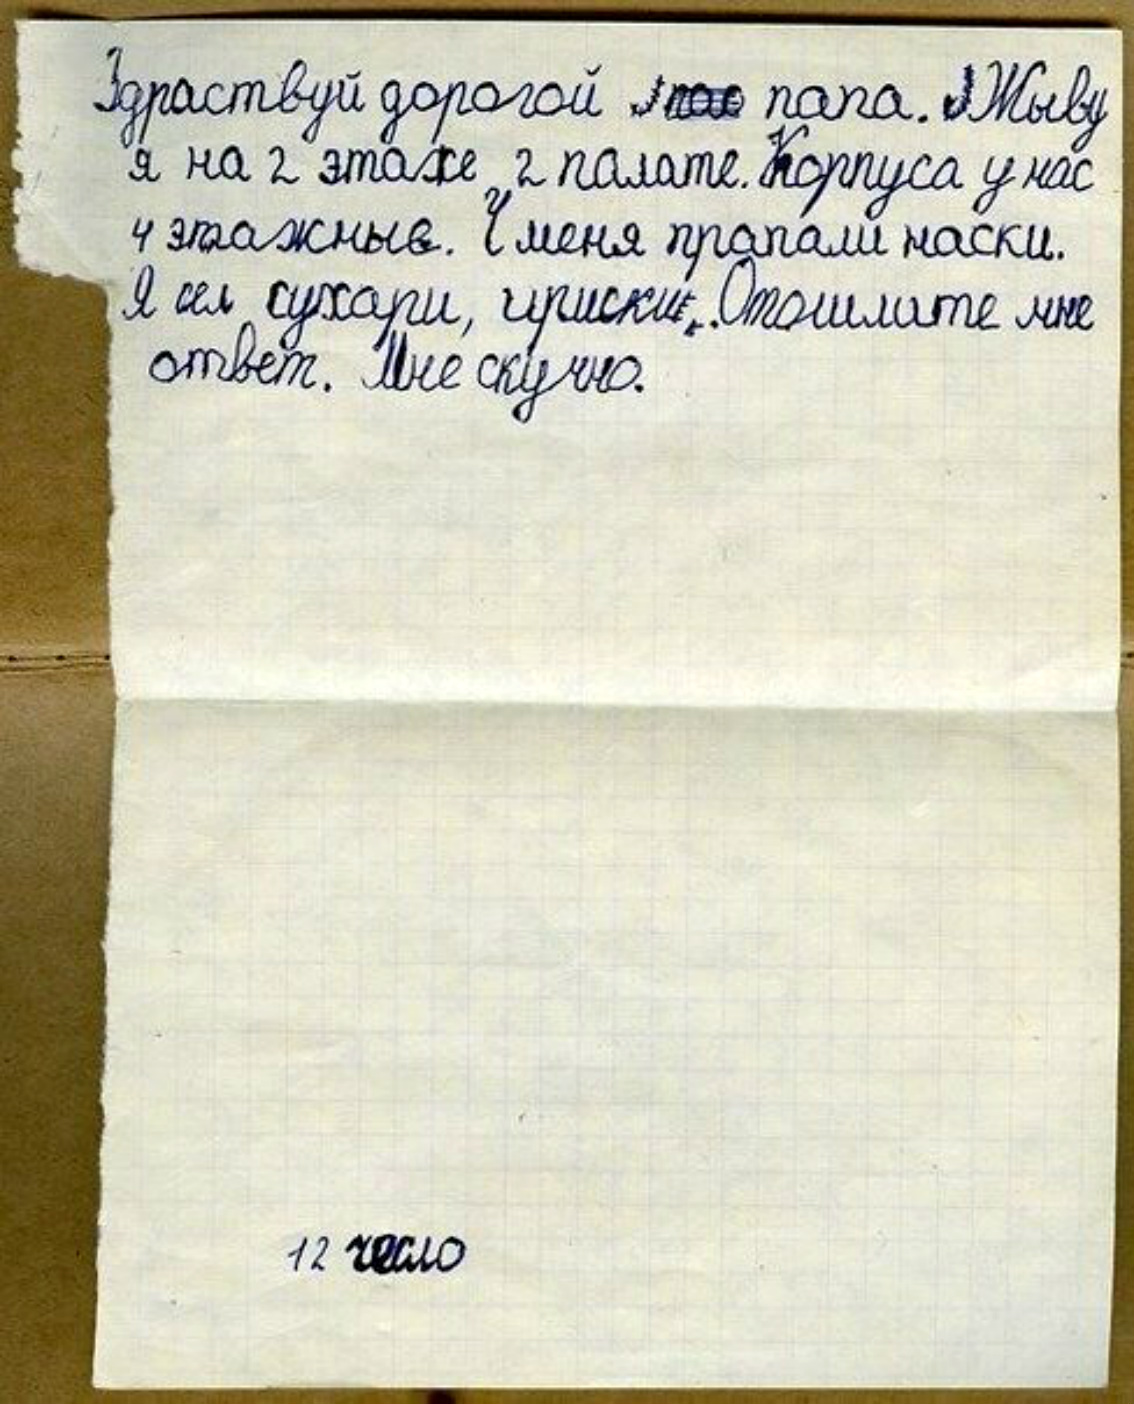 Здраствуй дорогой папа. Жыву
я на 2 этаже 2 палате. Корпуса у нас
4 этажные. У меня прапали наски.
Я ел сухари, ириски. Отошлате мне
ответ. Мне скучно.
12 число